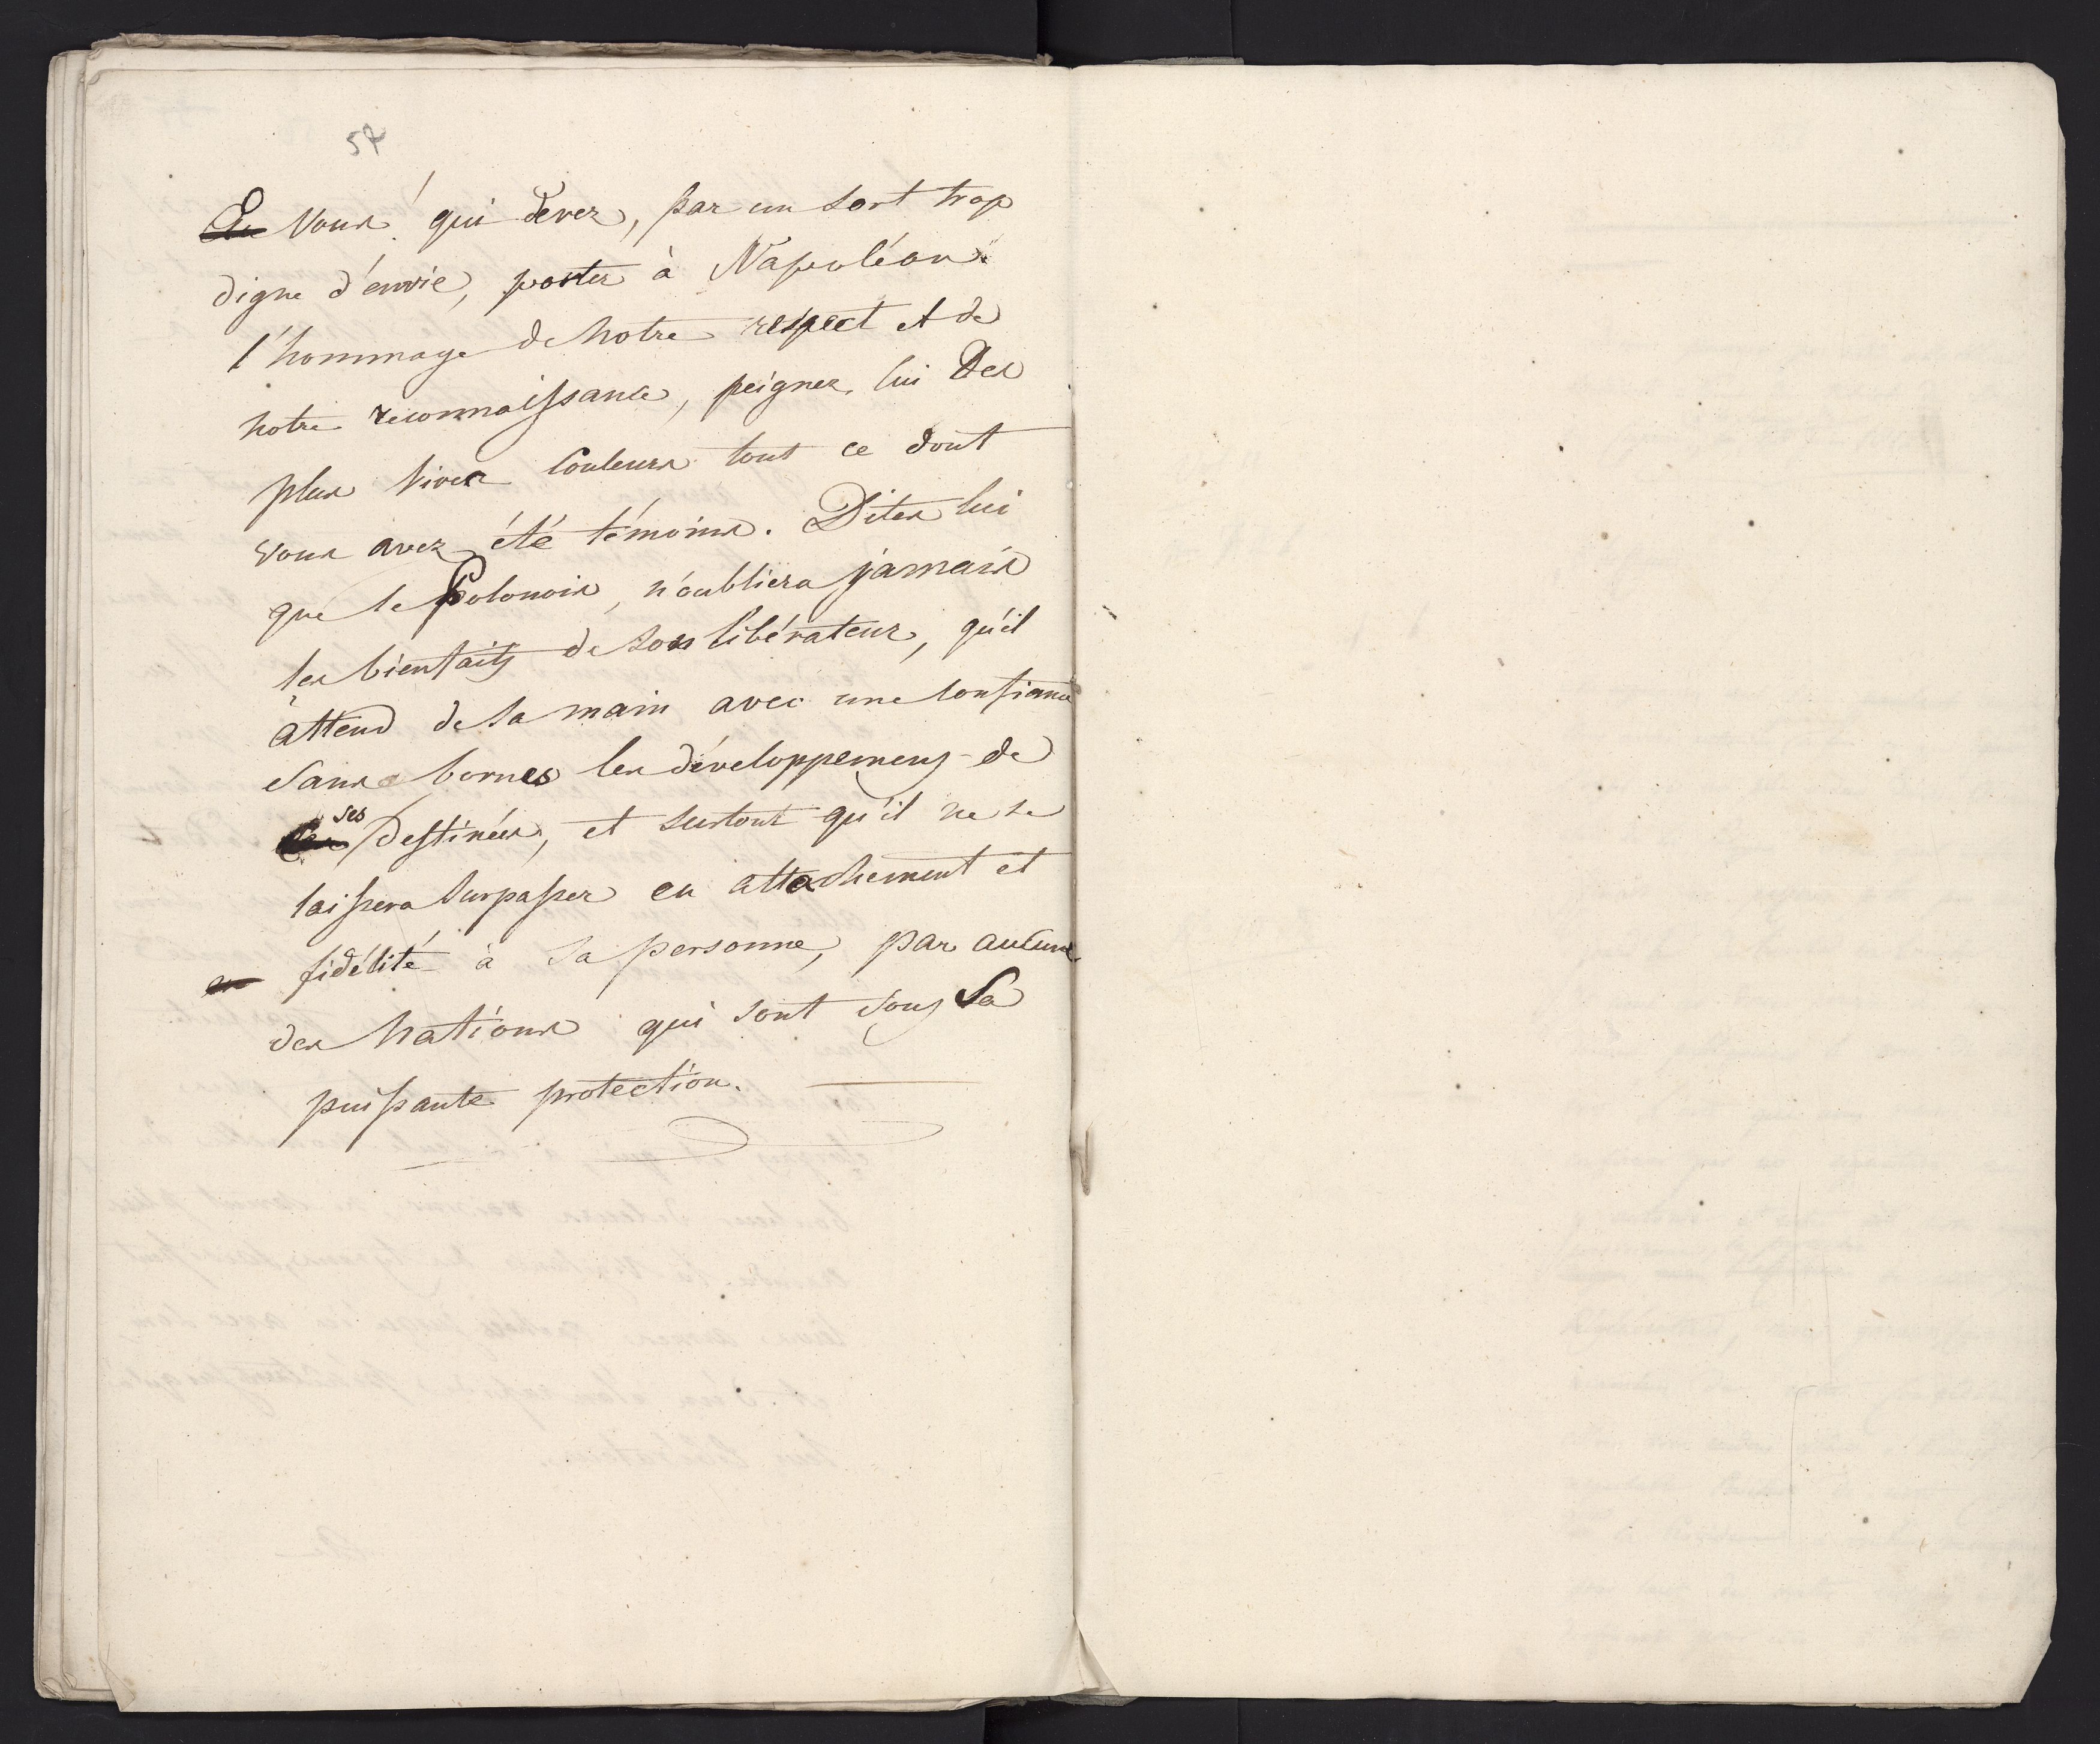 57
Vous! qui devez, par un sort trop
digne d'envie, porter à Napoléon
l'hommage de notre respect et de
notre reconnaissance, peignez lui des
plus vives couleurs tout ce dont
vous avez été témoins. Dites lui
que le Polonois, n'oubliera jamais
les bienfaits de son libérateur, qu'il
attend de sa main avec une confiance
sans bornes les développemens de
ses destinées, et surtout qu'il ne se
laissera surpasser en attachement et
en fidélité à sa personne, par aucune
des Nations qui sont sous Sa
puissante protection.